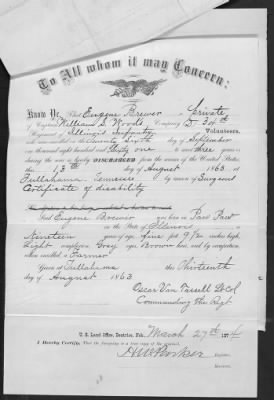 To All whom it may Concern:
Know Ye, That Eugene Brewer a Private
of Captain William S. Company D. 34th
Regiment of Illinois Infantry Volunteers,
who was enrolled on the Sixth day of September
one thousand eight hundred and Sixty one to serve Three years or
during the war, is hereby DISCHARGED from the service of the United States
this 13th day of August 1863, at
Tullahama Tennessee by reason of Surgeons
Certificate of disability
Said Eugene Brewer was born in Paw Paw
in the State of Illinois, is
Nineteen years of age, five feet 9 1/2 inches high,
Light complexion, Grey eyes, Brown hair, and by occupation,
when enrolled, a Farmer
Given at Tullahama this Thirteenth
day of August 1863.
Oscar Van Tassell Lt Col
Commanding the Regt
U. S. Land Office, Beatrice, Neb., March 27th 1874
I Hereby Certify, That the foregoing is a true copy of the original.
Register.
Receiver.